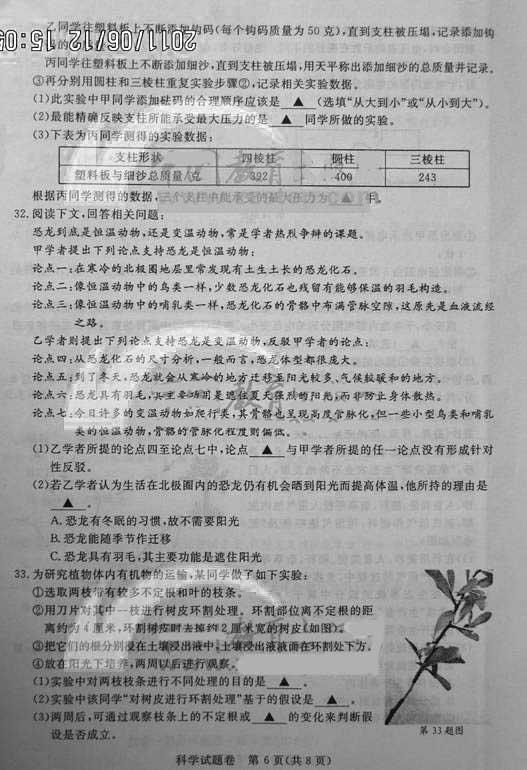 乙同学往塑料板上不断添加钩码(每个钩码质量为50克),直到支柱被压塌,记录添加钩
2011/06/12 15:0
丙同学往塑料板上不断添加细沙,直到支柱被压塌,用天平称出添加细沙的总质量并记录。
③再分别用圆柱和三棱柱重复实验步骤②,记录相关实验数据。
(1)此实验中甲同学添加砝码的合理顺序应该是 ▲ (选填“从大到小”或“从小到大”)。
(2)最能精确反映支柱所能承受最大压力的是 ▲ 同学所做的实验。
(3)下表为丙同学测得的实验数据:
支柱形状 四棱柱 圆柱 三棱柱
塑料板与细沙总质量/克 392 400 243
根据丙同学测得的数据,三个支柱中能承受的最大压力为 ▲ 牛。
32.阅读下文,回答相关问题:
恐龙到底是恒温动物,还是变温动物,常是学者热烈争辩的课题。
甲学者提出下列论点支持恐龙是恒温动物:
论点一:在寒冷的北极圈地层里常发现有土生土长的恐龙化石。
论点二:像恒温动物中的鸟类一样,少数恐龙化石也残留有能够保温的羽毛构造。
论点三:像恒温动物中的哺乳类一样,恐龙化石的骨骼中布满管脉空隙,这原先是血液流经
之路。
乙学者则提出下列论点支持恐龙是变温动物,反驳甲学者的论点:
论点四:从恐龙化石的尺寸分析,一般而言,恐龙体型都很庞大。
论点五:到了冬天,恐龙就会从寒冷的地方迁移至阳光较多、气候较暖和的地方。
论点六:恐龙具有羽毛,其主要功用是遮住夏天强烈的阳光,而非防止身体散热。
论点七:今日许多的变温动物如爬行类,其骨骼也呈现高度管脉化,但一些小型鸟类和哺乳
类的恒温动物,骨骼的管脉化程度则偏低。
(1)乙学者所提的论点四至论点七中,论点 ▲ 与甲学者所提的任一论点没有形成针对
性反驳。
(2)若乙学者认为生活在北极圈内的恐龙仍有机会晒到阳光而提高体温,他所持的理由是
▲ 。
A.恐龙有冬眠的习惯,故不需要阳光
B.恐龙能随季节作迁移
C.恐龙具有羽毛,其主要功能是遮住阳光
33.为研究植物体内有机物的运输,某同学做了如下实验:
①选取两枝带有较多不定根和叶的枝条。
②用刀片对其中一枝进行树皮环割处理。环割部位离不定根的距
离约为4厘米,环割树皮时去掉约2厘米宽的树皮(如图)。
③把它们的根分别浸在土壤浸出液中,土壤浸出液液面在环割处下方。
④放在阳光下培养,两周以后进行观察。
(1)实验中对两枝枝条进行不同处理的目的是 ▲ 。
(2)实验中该同学“对树皮进行环割处理”基于的假设是 ▲ 。
(3)两周后,可通过观察枝条上的不定根或 ▲ 的变化来判断假
设是否成立。
第33题图
科学试题卷 第6页(共8页)